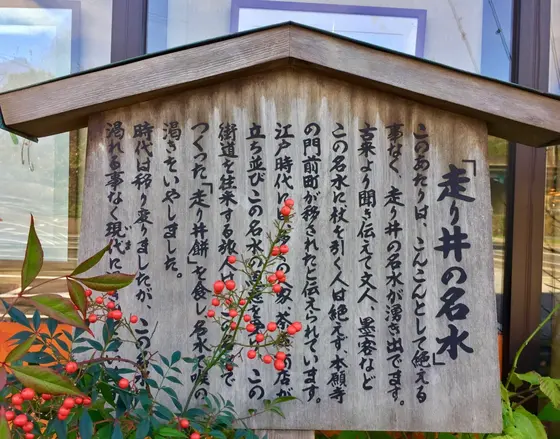 「走り井の名水」
このあたりは、こんこんとして絶える
事なく、走り井の名水が湧き出でます。
古来より聞き伝えて文人、墨客など
この名水に杖を引く人は絶えず、本願寺
の門前町が移されたと伝えられています。
江戸時代に
の店が
立ち並びこの名水
この
街道を往来する旅人は
で
つくった「走り井餅」を食し名水で喉の
渇きをいやしました。
時代は移り変りましたが、この名
涸れる事なく現代に